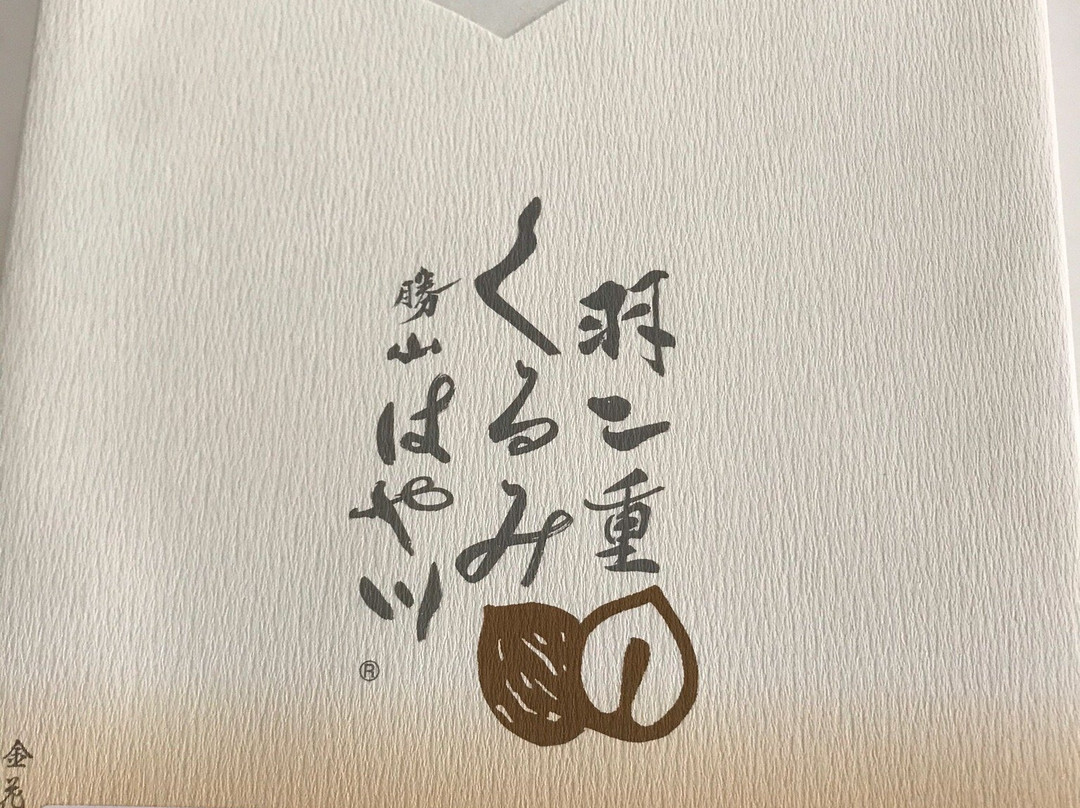 羽二重
くるみ
勝山はや川
®
金花